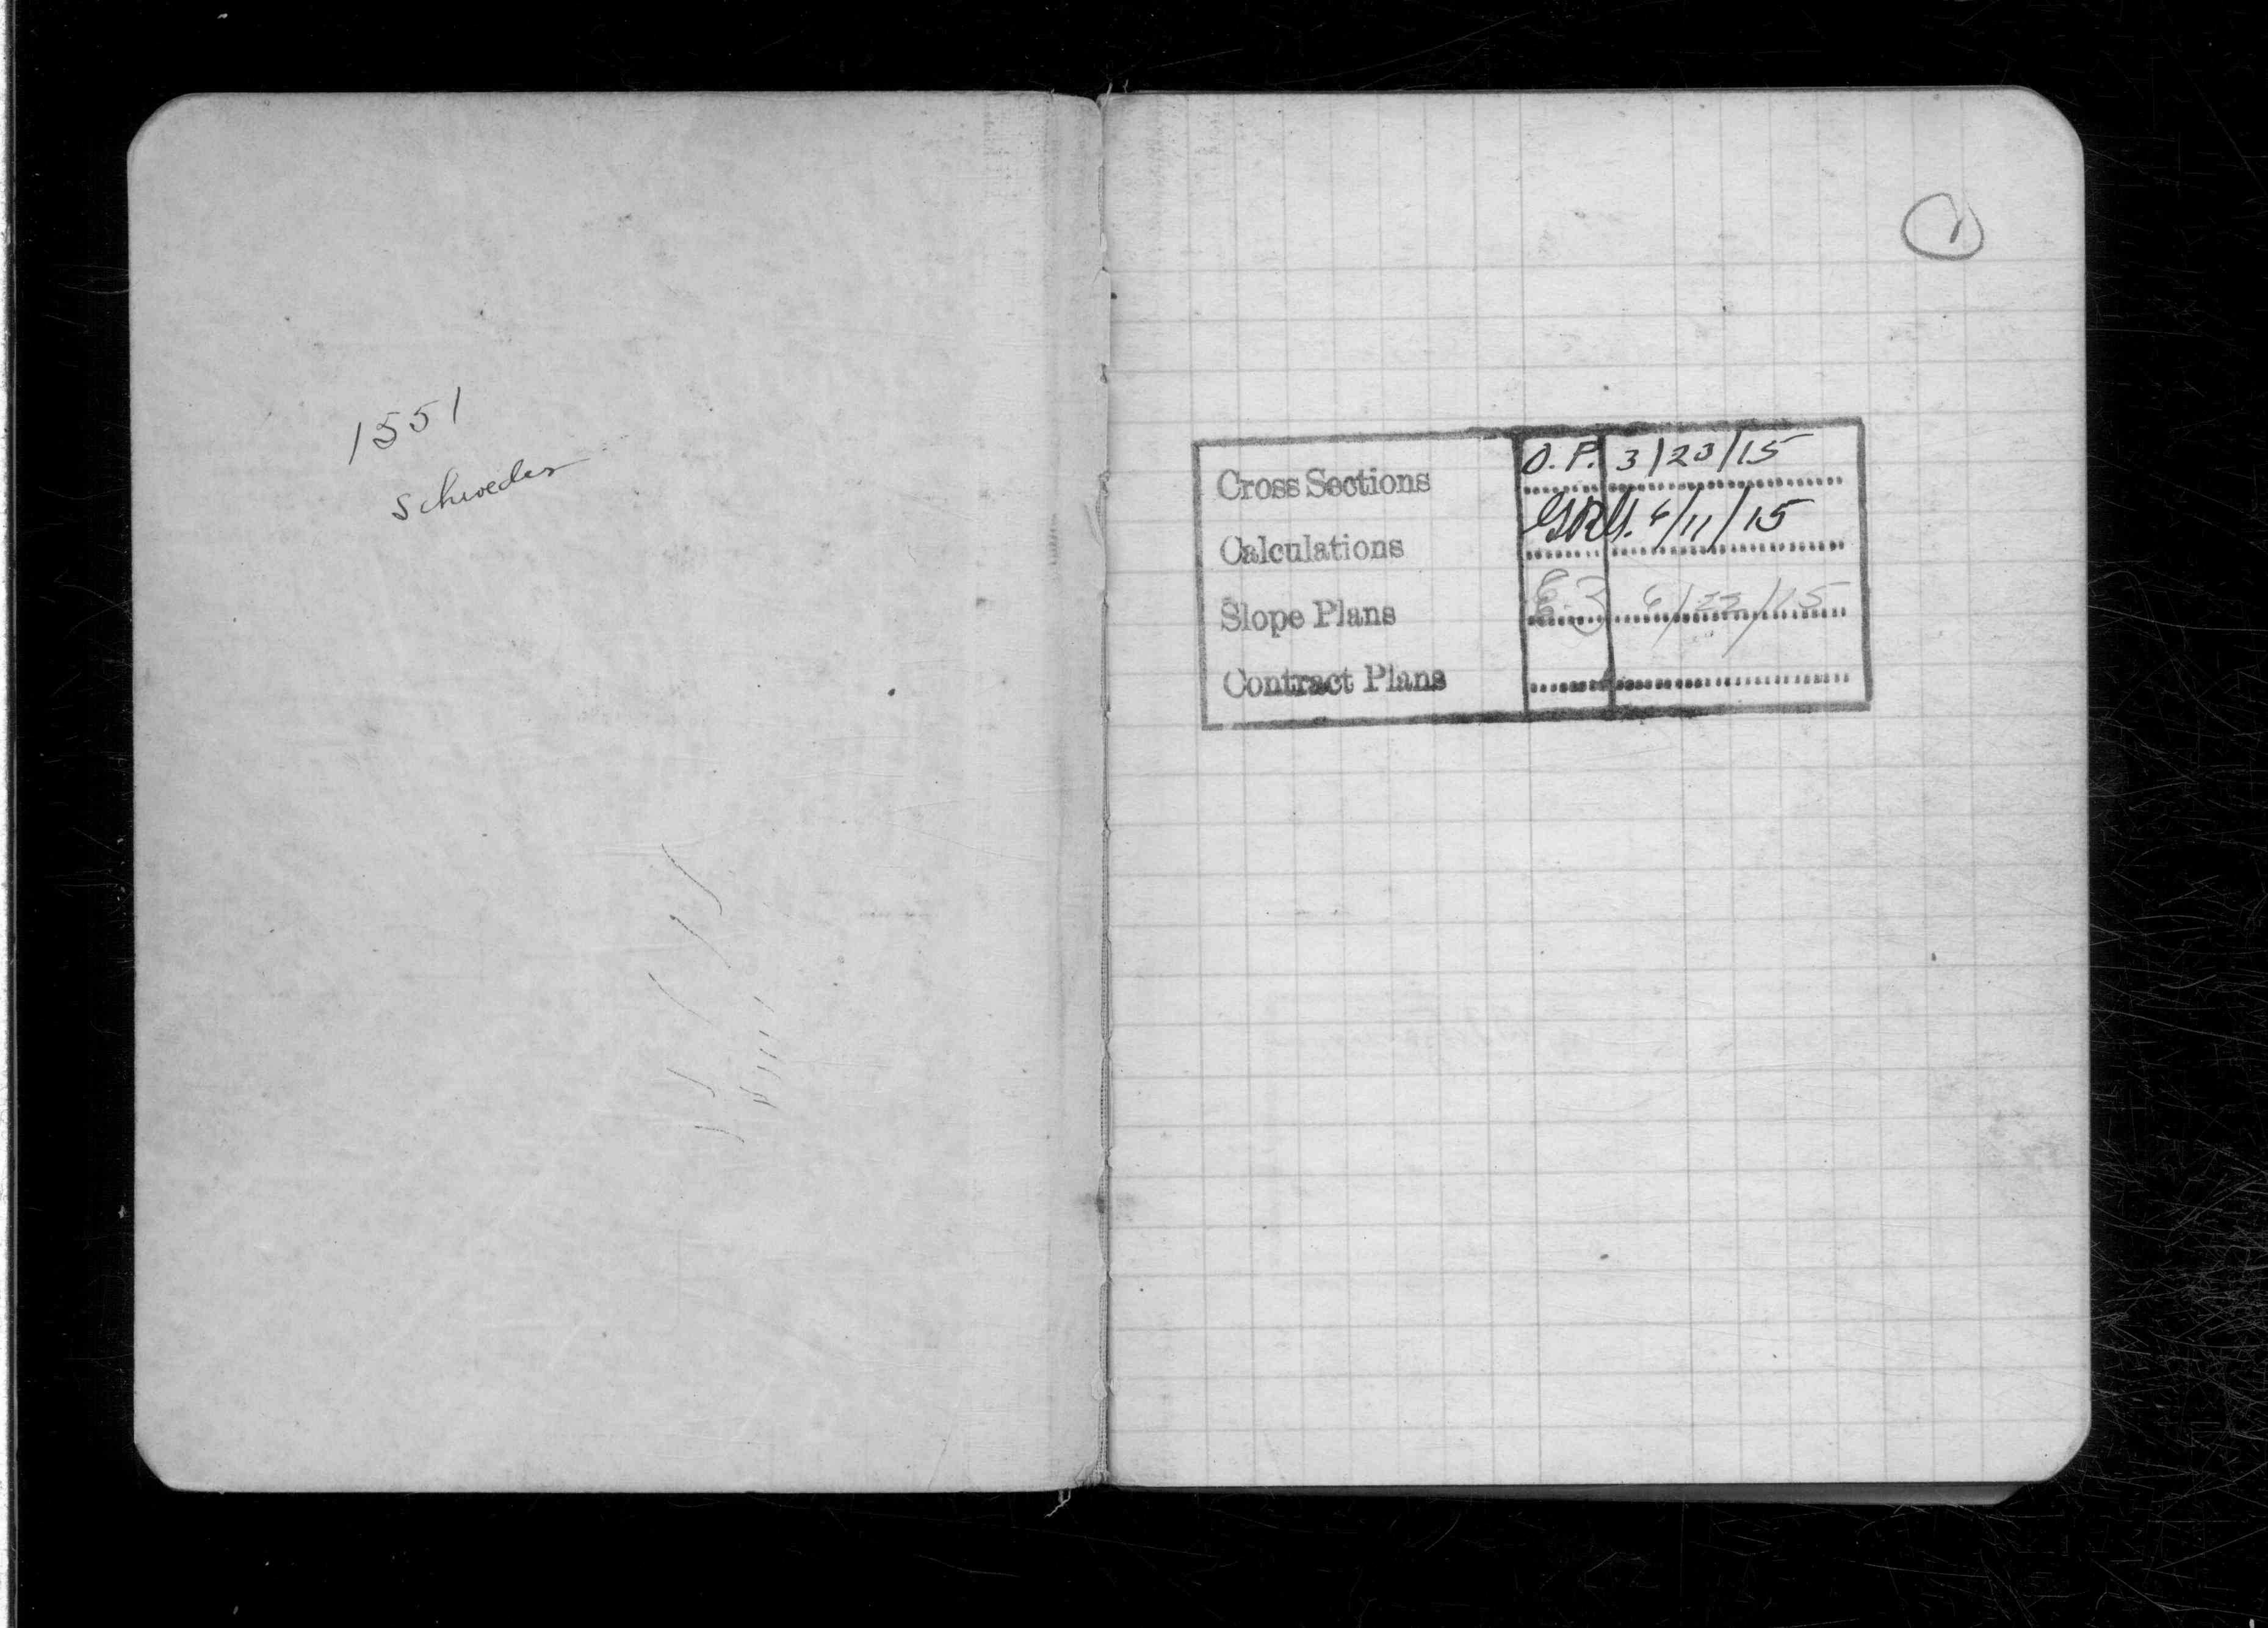 1551
Schroeder
1
Cross Sections O.P. 3/23/15
Calculations 6/11/15
Slope Plans 6/22/15
Contract Plans